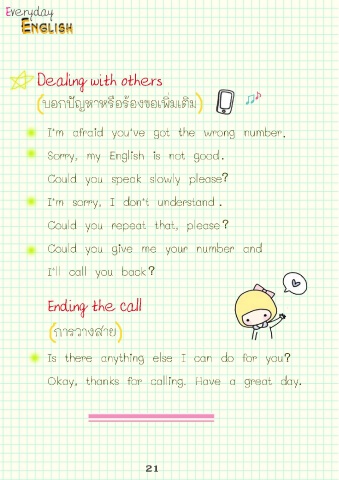 Everyday
ENGLISH
Dealing with others
(บอกปัญหาหรือร้องขอเพิ่มเติม)
I'm afraid you've got the wrong number.
Sorry, my English is not good.
Could you speak slowly please?
I'm sorry, I don't understand.
Could you repeat that, please?
Could you give me your number and
I'll call you back?
Ending the call
(การวางสาย)
Is there anything else I can do for you?
Okay, thanks for calling. Have a great day.
21